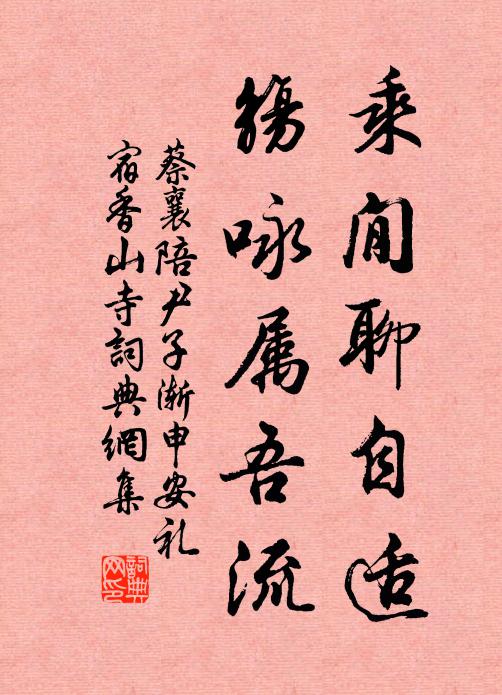 乘閒聊自适
觴咏属吾流
蔡襄陪尹子渐申安礼
宿香山寺詞典網集
詞典网印